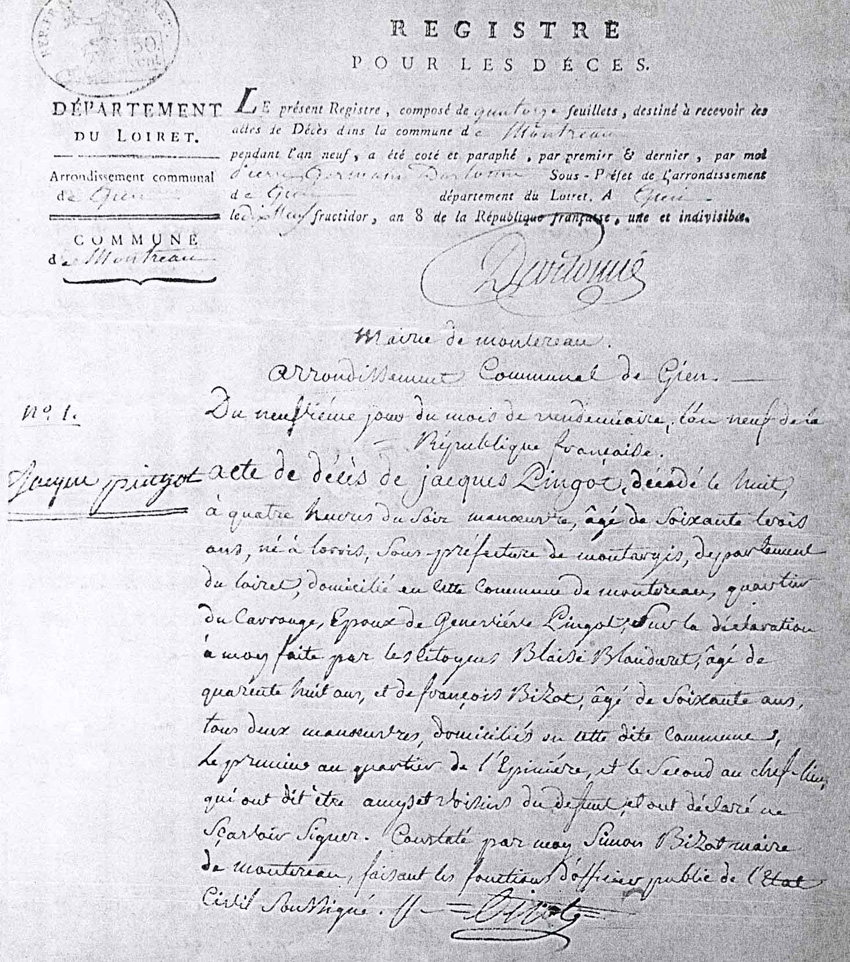 REGISTRE
POUR LES DÉCES.
50
DÉPARTEMENT
DU LOIRET.
Arrondissement communal
de Gien
COMMUNE
de Montreau
LE présent Registre, composé de quatorze feuillets, destiné à recevoir les
actes de Décès dans la commune de Montreau
pendant l'an neuf, a été coté et paraphé, par premier & dernier, par moi
Pierre Germain Sous-Préfet de l'arrondissement
de Gien département du Loiret. A Gien
le dix Neuf fructidor, an 8 de la République française, une et indivisible.
Mairie de montereau.
arrondissement Communal de Gien.
no. 1.
Du neufviéme jour du mois de vendemiaire, l'an neuf de la
République françaisse.
Jacque pingot
acte de décès de jacques Pingot, décédé le huit,
à quatre heures du Soir manœuvre, âgé de Soixante trois
ans, né à lorris, Sous-préfecture de montargis, departement
du loiret, domicilié en cette Commune de montereau, quartier
du Carrouge, Epoux de Geneviéve Pingot, Sur la déclaration
à moy faite par les citoyens Blaise Blonderet, âgé de
quarente huit ans, et de françois Bizot, âgé de Soixante ans,
tous deux manœuvres, domiciliés en cette dite Commune,
Le premier au quartier de l'Epiniére, et le Second au chef-lieu,
qui ont dit être amys et voisins du defunt, et ont déclaré ne
Sçavoir Signer. Constaté par moy Simon Bizot maire
de montereau, faisant les fonctions d'officier public de l'Etat
Civil Soussigné.
Bizot